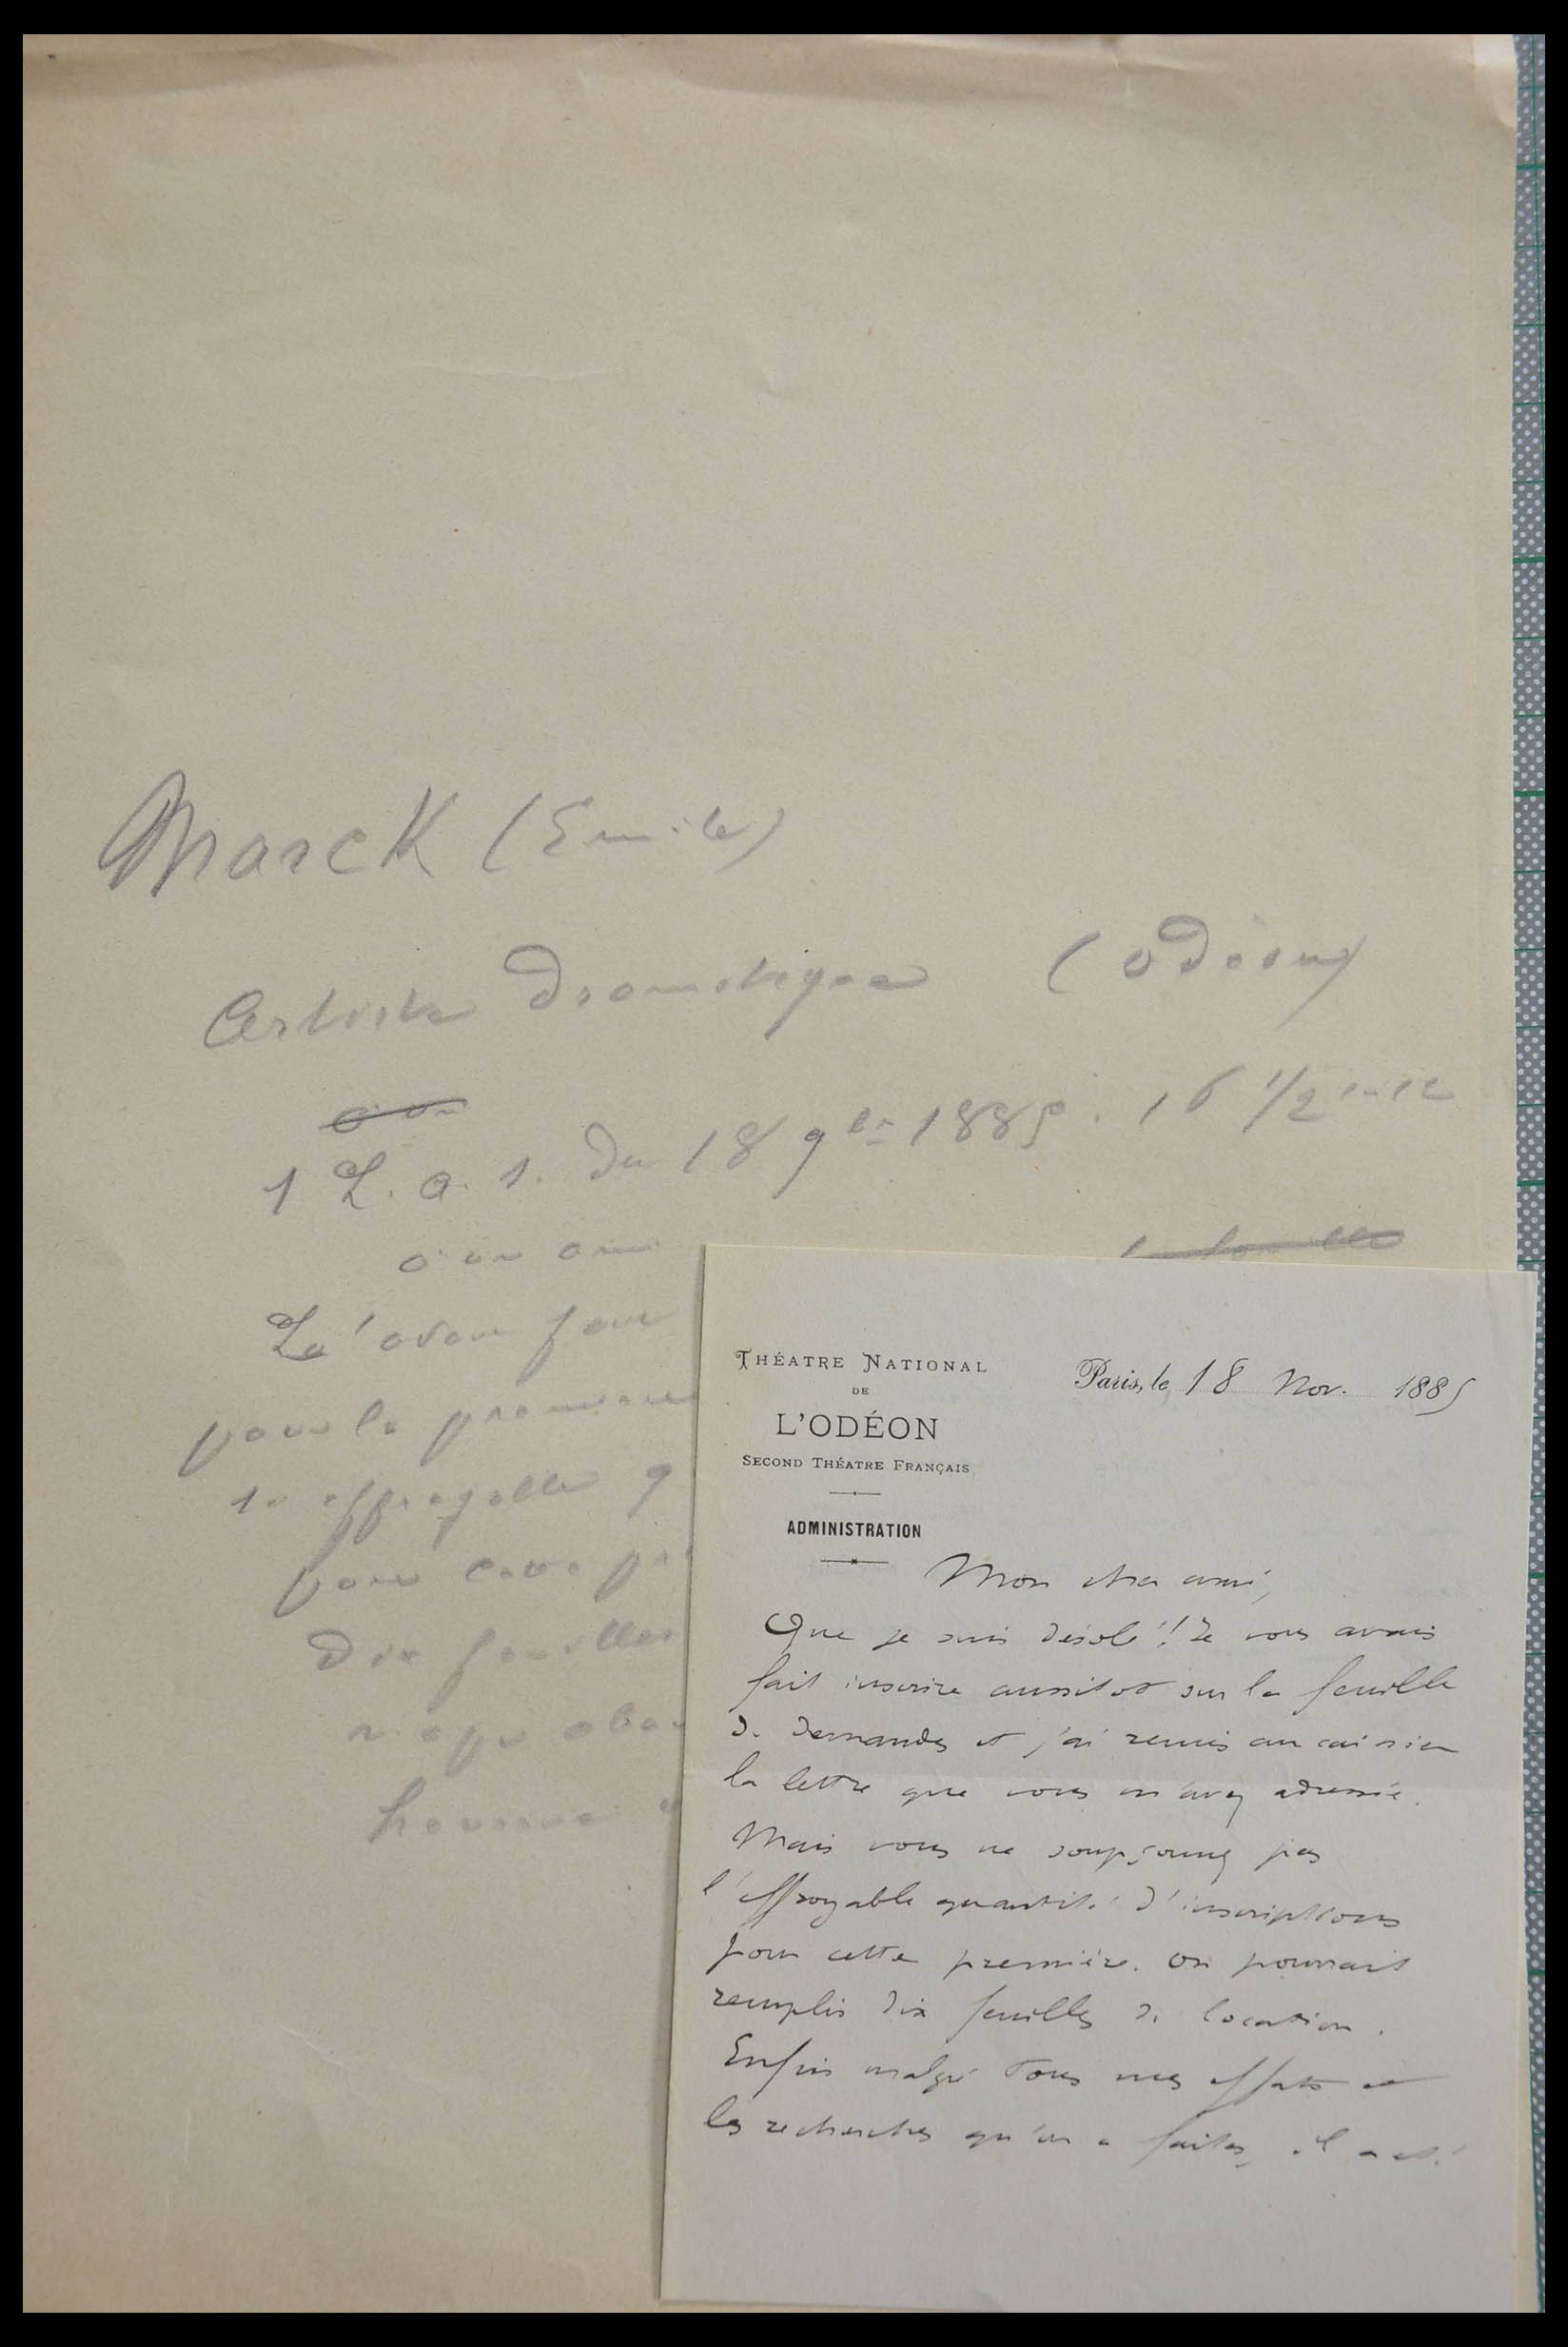 Marck (Emile)
Artiste Dramatique (Odéon)
1 L. a. s. du 18 9bre 1885. 1 p 1/2 in-12
a un ami
L'avoir fait
pour la premiere
Dix feuilles
THÉATRE NATIONAL
DE
L'ODÉON
SECOND THÉATRE FRANÇAIS
ADMINISTRATION
Paris, le 18 Nov. 1885
Mon cher ami,
Que je suis désolé! Je vous avais
fait inscrire aussitot sur la feuille
de demandes et j'ai remis au caissier
la lettre que vous m'avez adressée.
Mais vous ne soupçonnez pas
l'effroyable quantité d'inscriptions
pour cette première. On pourrait
remplir dix feuilles de location.
Enfin malgré tous mes efforts et
les recherches qu'on a faites, il a été